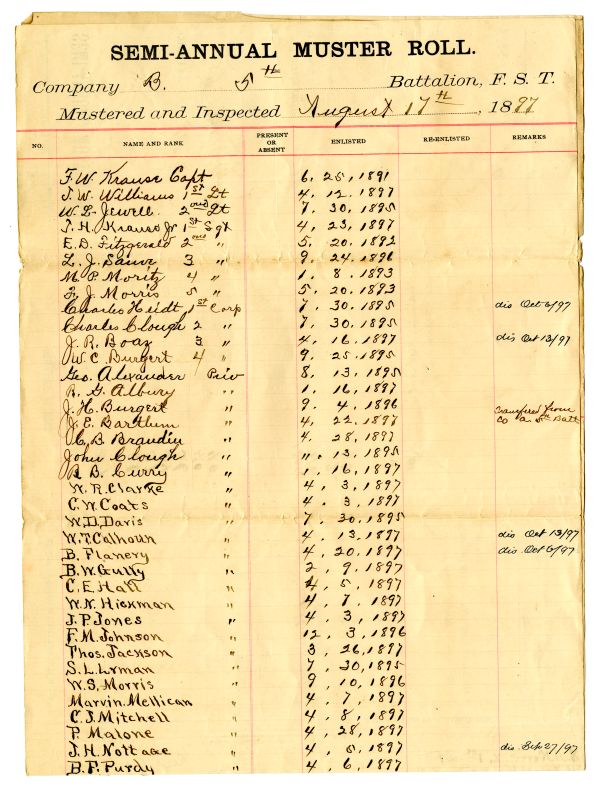 SEMI-ANNUAL MUSTER ROLL.
Company B. 5th Battalion, F. S. T.
Mustered and Inspected August 17th, 1897
NO. NAME AND RANK PRESENT OR ABSENT ENLISTED RE-ENLISTED REMARKS
F. W. Krause Capt 6, 25, 1891
J. W. Williams 1st Lt 4, 12, 1897
W. L. Jewell 2ond Lt 7, 30, 1895
J. H. Krause Jr 1st Sgt 4, 23, 1897
E. D. Fitzgerald 2ond " 5, 20, 1892
L. J. 3 " 9, 24, 1896
M. P. Moritz 4 " 1, 8, 1893
F. J. Morris 5 " 5, 20, 1893
Charles Heidt 1st Corp 7, 30, 1895 dis Oct 6/97
Charles Clough 2 " 7, 30, 1895
J. R. Boaz 3 " 4, 16, 1897 dis Oct 13/97
W. C. Burgert 4 " 9, 25, 1895
Geo. Alexander Priv 8, 13, 1895
R. G. Albury " 1, 16, 1897
J. H. Burgert " 9, 4, 1896
J. E. Bartlum " 4, 22, 1897 transfired from Co A. 5th Batt
C. B. " 4, 28, 1897
John Clough " ", 13, 1895
R. B. Curry " 1, 16, 1897
W. R. Clarke " 4, 3, 1897
C. W. Coats " 4, 3, 1897
W. D. Davis " 7, 30, 1895
W. T. Calhoun " 4, 13, 1897 dis Oct 13/97
B. Flanery " 4, 20, 1897 dis. Oct 6/97
B. W. Gully " 2, 9, 1897
C. E. Hall " 4, 5, 1897
W. N. Hickman " 4, 7, 1897
J. P. Jones " 4, 3, 1897
F. M. Johnson " 12, 3, 1896
Thos. Jackson " 3, 26, 1897
S. L. Lyman " 7, 30, 1895
W. S. Morris " 9, 10, 1896
Marvin. Mellican " 4, 7, 1897
C. J. Mitchell " 4, 8, 1897
P. Malone " 4, 28, 1897
J. H. Nottage " 4, 5, 1897 dis Sep 27/97
B. F. Purdy " 4, 6, 1897